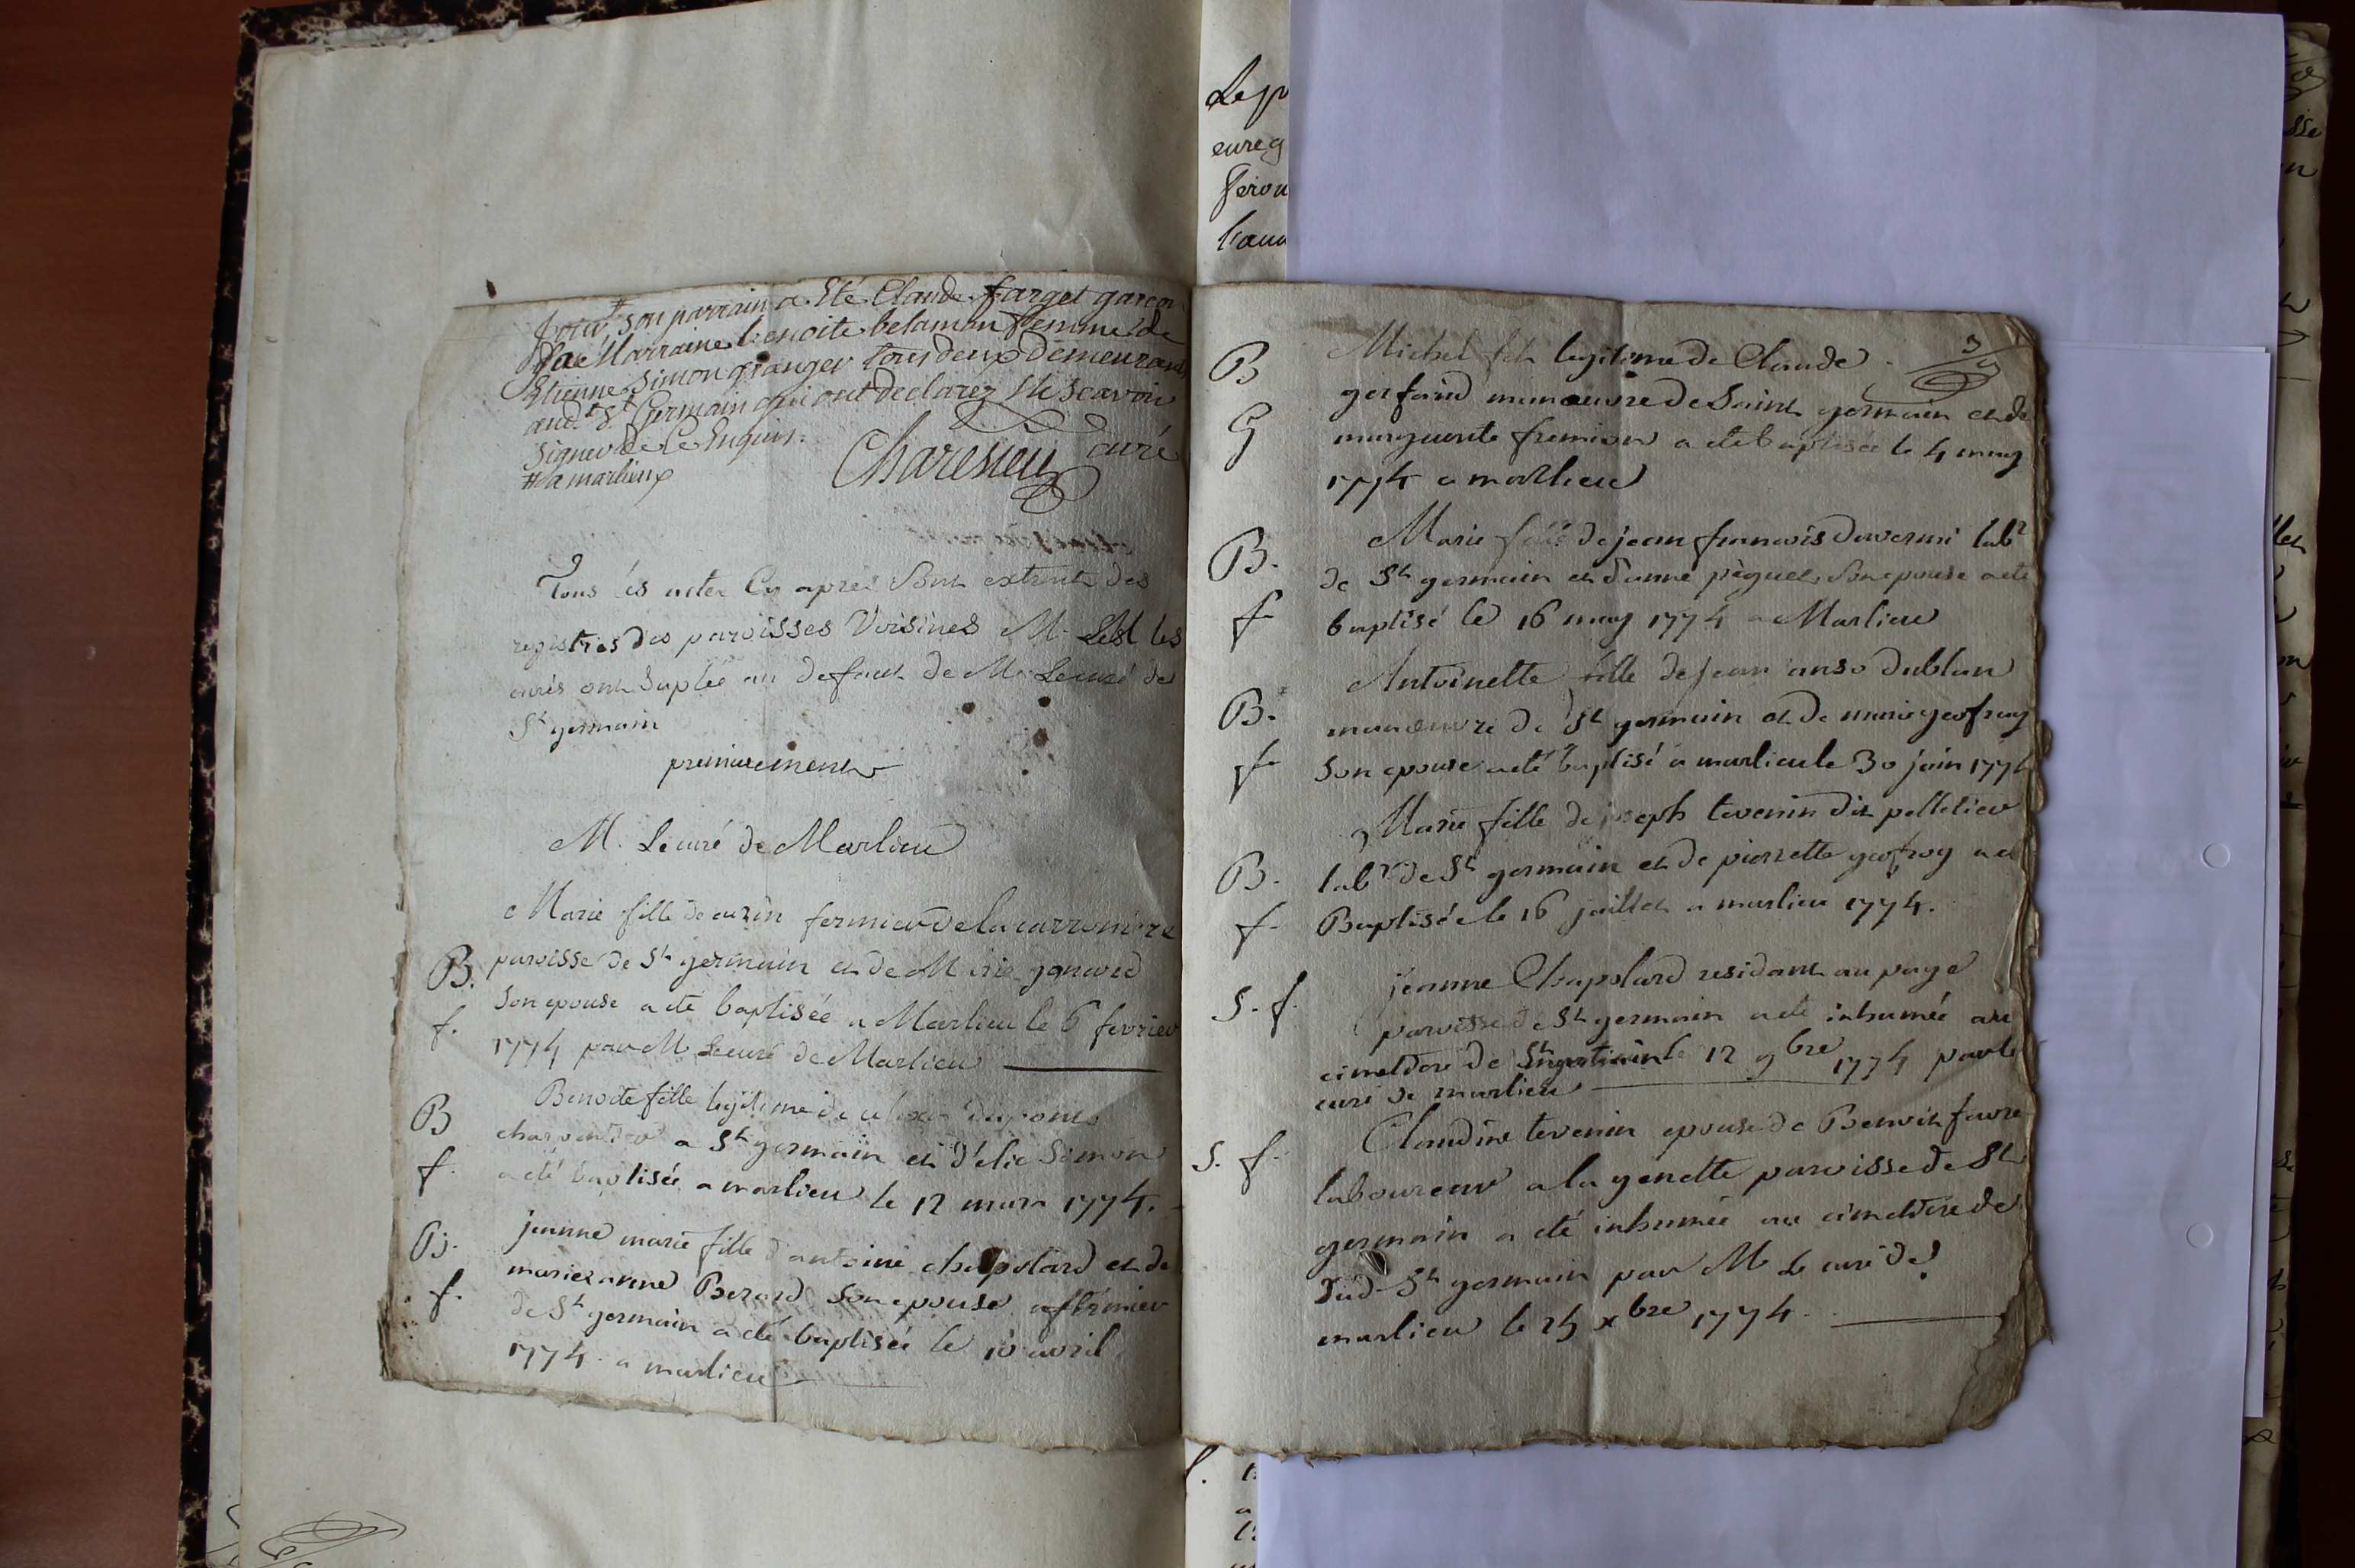 jour son parrain a Eté Claude farget garcon
sa Marraine benoite belamin femme de
Etienne Simon granger tous deux demeurant
aud.t S.t Germain qui ont declarez ne scavoir
signer de ce Enquis.
# a marlieux
Charesieu curé
Tous les actes Cy apres sont extraits des
registres des paroisses Voisines M. les
curés ont suplée au defaut de M. Le curé de
St germain
premierement
M. Le curé de Marlieu
B.
f.
Marie fille de curin fermier de la carronniere
paroisse de St germain et de Marie gonard
son epouse a été baptisée a Marlieu le 6 fevrier
1774 par M Le curé de Marlieu
B
f.
Benoite fille legitime de dupont
charpentier a St germain et d'élie Simon
a été baptisée a marlieu le 12 mars 1774.
B.
f.
jeanne marie fille d'antoine chapolard et de
marie anne Berard son epouse
de St germain a été baptisée le 10 avril
1774 a marlieu
Le p
eureg
feron
3
B
G
Michel fils legitime de Claude
gerfaud manoeuvre de Saint germain et de
marguerite fremion a eté baptisée le 4 may
1774 a marlieu
B.
f
Marie fille de jean francois duverni labr
de St germain et d'anne pèguet son epouse a eté
baptisé le 16 may 1774 a Marlieu
B.
f
Antoinette fille de jean anso dublan
manoeuvre de St germain et de marie geofray
son epouse a eté baptisé a marlieu le 30 juin 1774
B.
f.
Marie fille de joseph tevenin dit pelletier
labr de St germain et de pierrette geofroy a eté
Baptisée le 16 juillet a marlieu 1774.
S. f.
jeanne Chapolard residant au page
paroisse de St germain a eté inhumée au
cimetiere de St germain le 12 9bre 1774 par le
curé de marlieu
S. f.
Claudine tevenin epouse de Benoit favre
laboureur a la genette paroisse de St
germain a été inhumée au cimetiere de
dud St germain par M Le curé de
marlieu le 25 xbre 1774.